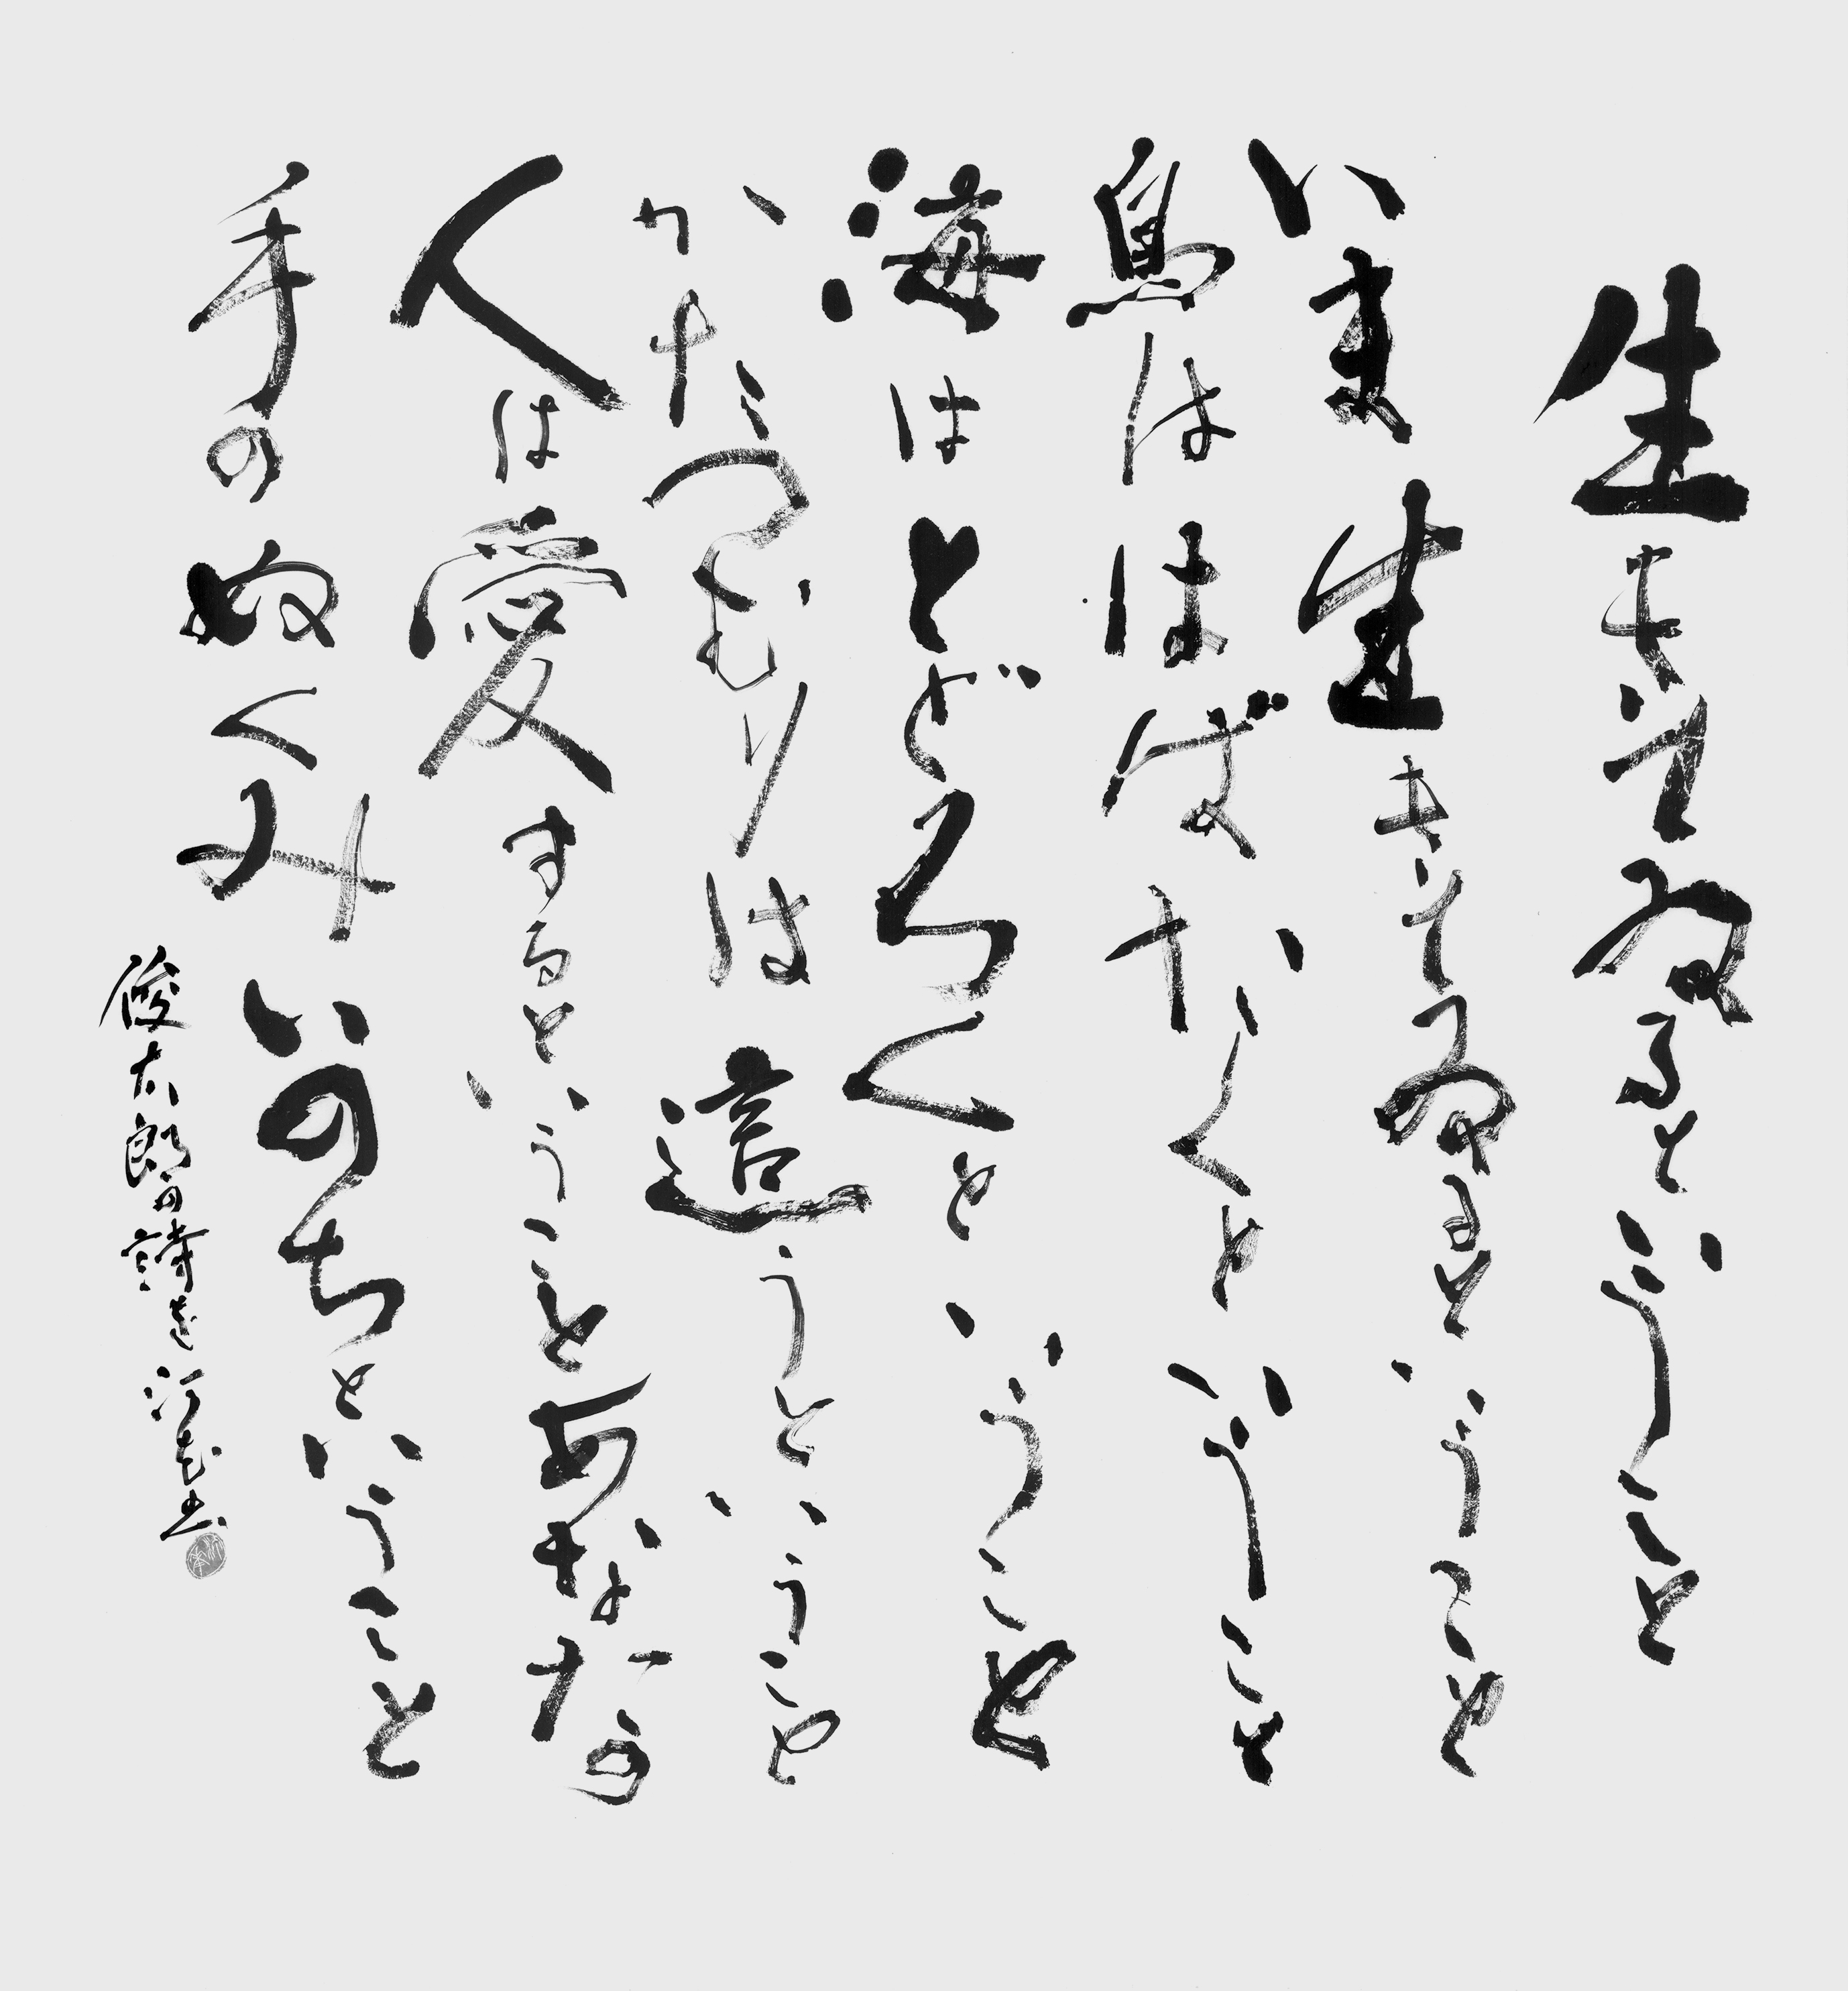 生きてゐるということ
いま生きてゐるということ
鳥ははばたくということ
海はとどろくということ
かたつむりは這うということ
人は愛するということあなたの
手のぬくみいのちということ
俊太郎の詩を 書